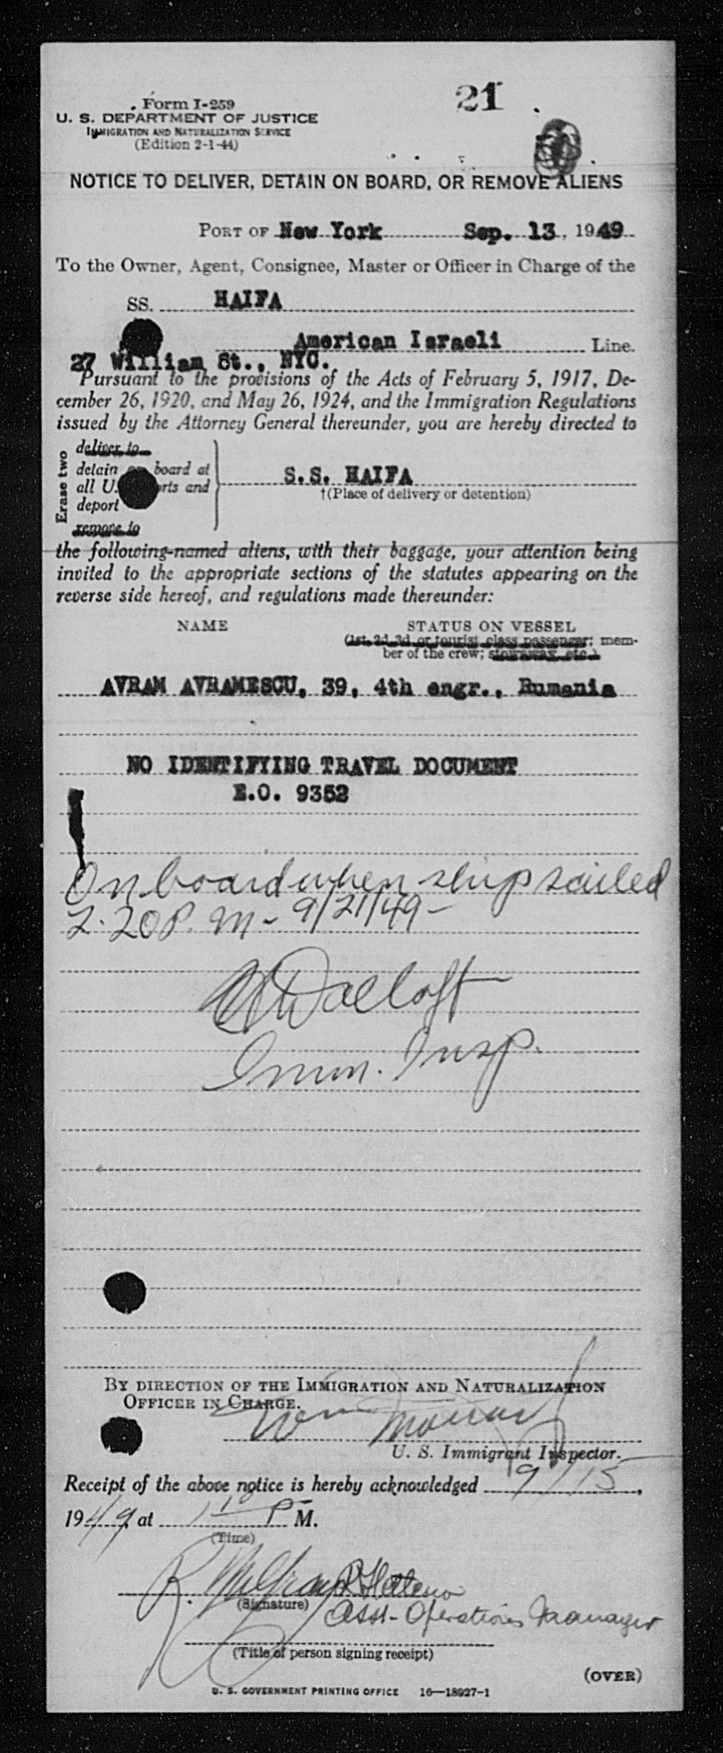 21
Form I-259
U. S. DEPARTMENT OF JUSTICE
IMMIGRATION AND NATURALIZATION SERVICE
(Edition 2-1-44)
NOTICE TO DELIVER, DETAIN ON BOARD, OR REMOVE ALIENS
PORT OF New York Sep. 13, 1949
To the Owner, Agent, Consignee, Master or Officer in Charge of the
SS. HAIFA
American Israeli Line.
27 William St., NYC.
Pursuant to the provisions of the Acts of February 5, 1917, De-
cember 26, 1920, and May 26, 1924, and the Immigration Regulations
issued by the Attorney General thereunder, you are hereby directed to
Erase two
deliver to
detain on board at
all U. ports and
deport
remove to
S.S. HAIFA
†(Place of delivery or detention)
the following-named aliens, with their baggage, your attention being
invited to the appropriate sections of the statutes appearing on the
reverse side hereof, and regulations made thereunder:
NAME STATUS ON VESSEL
(1st, 2d, 3d, or tourist class passenger; mem-
ber of the crew; stowaway, etc.)
AVRAM AVRAMESCU, 39, 4th engr., Rumania
NO IDENTIFYING TRAVEL DOCUMENT
E.O. 9352
On board when ship sailed
2.20 P. M - 9/21/49 -
Imm. Insp.
BY DIRECTION OF THE IMMIGRATION AND NATURALIZATION
OFFICER IN CHARGE.
U. S. Immigrant Inspector.
Receipt of the above notice is hereby acknowledged 9/15,
1949 at P M.
(Time)
(Signature)
Asst - Operations Manager
(Title of person signing receipt)
(OVER)
U. S. GOVERNMENT PRINTING OFFICE 16—18927-1